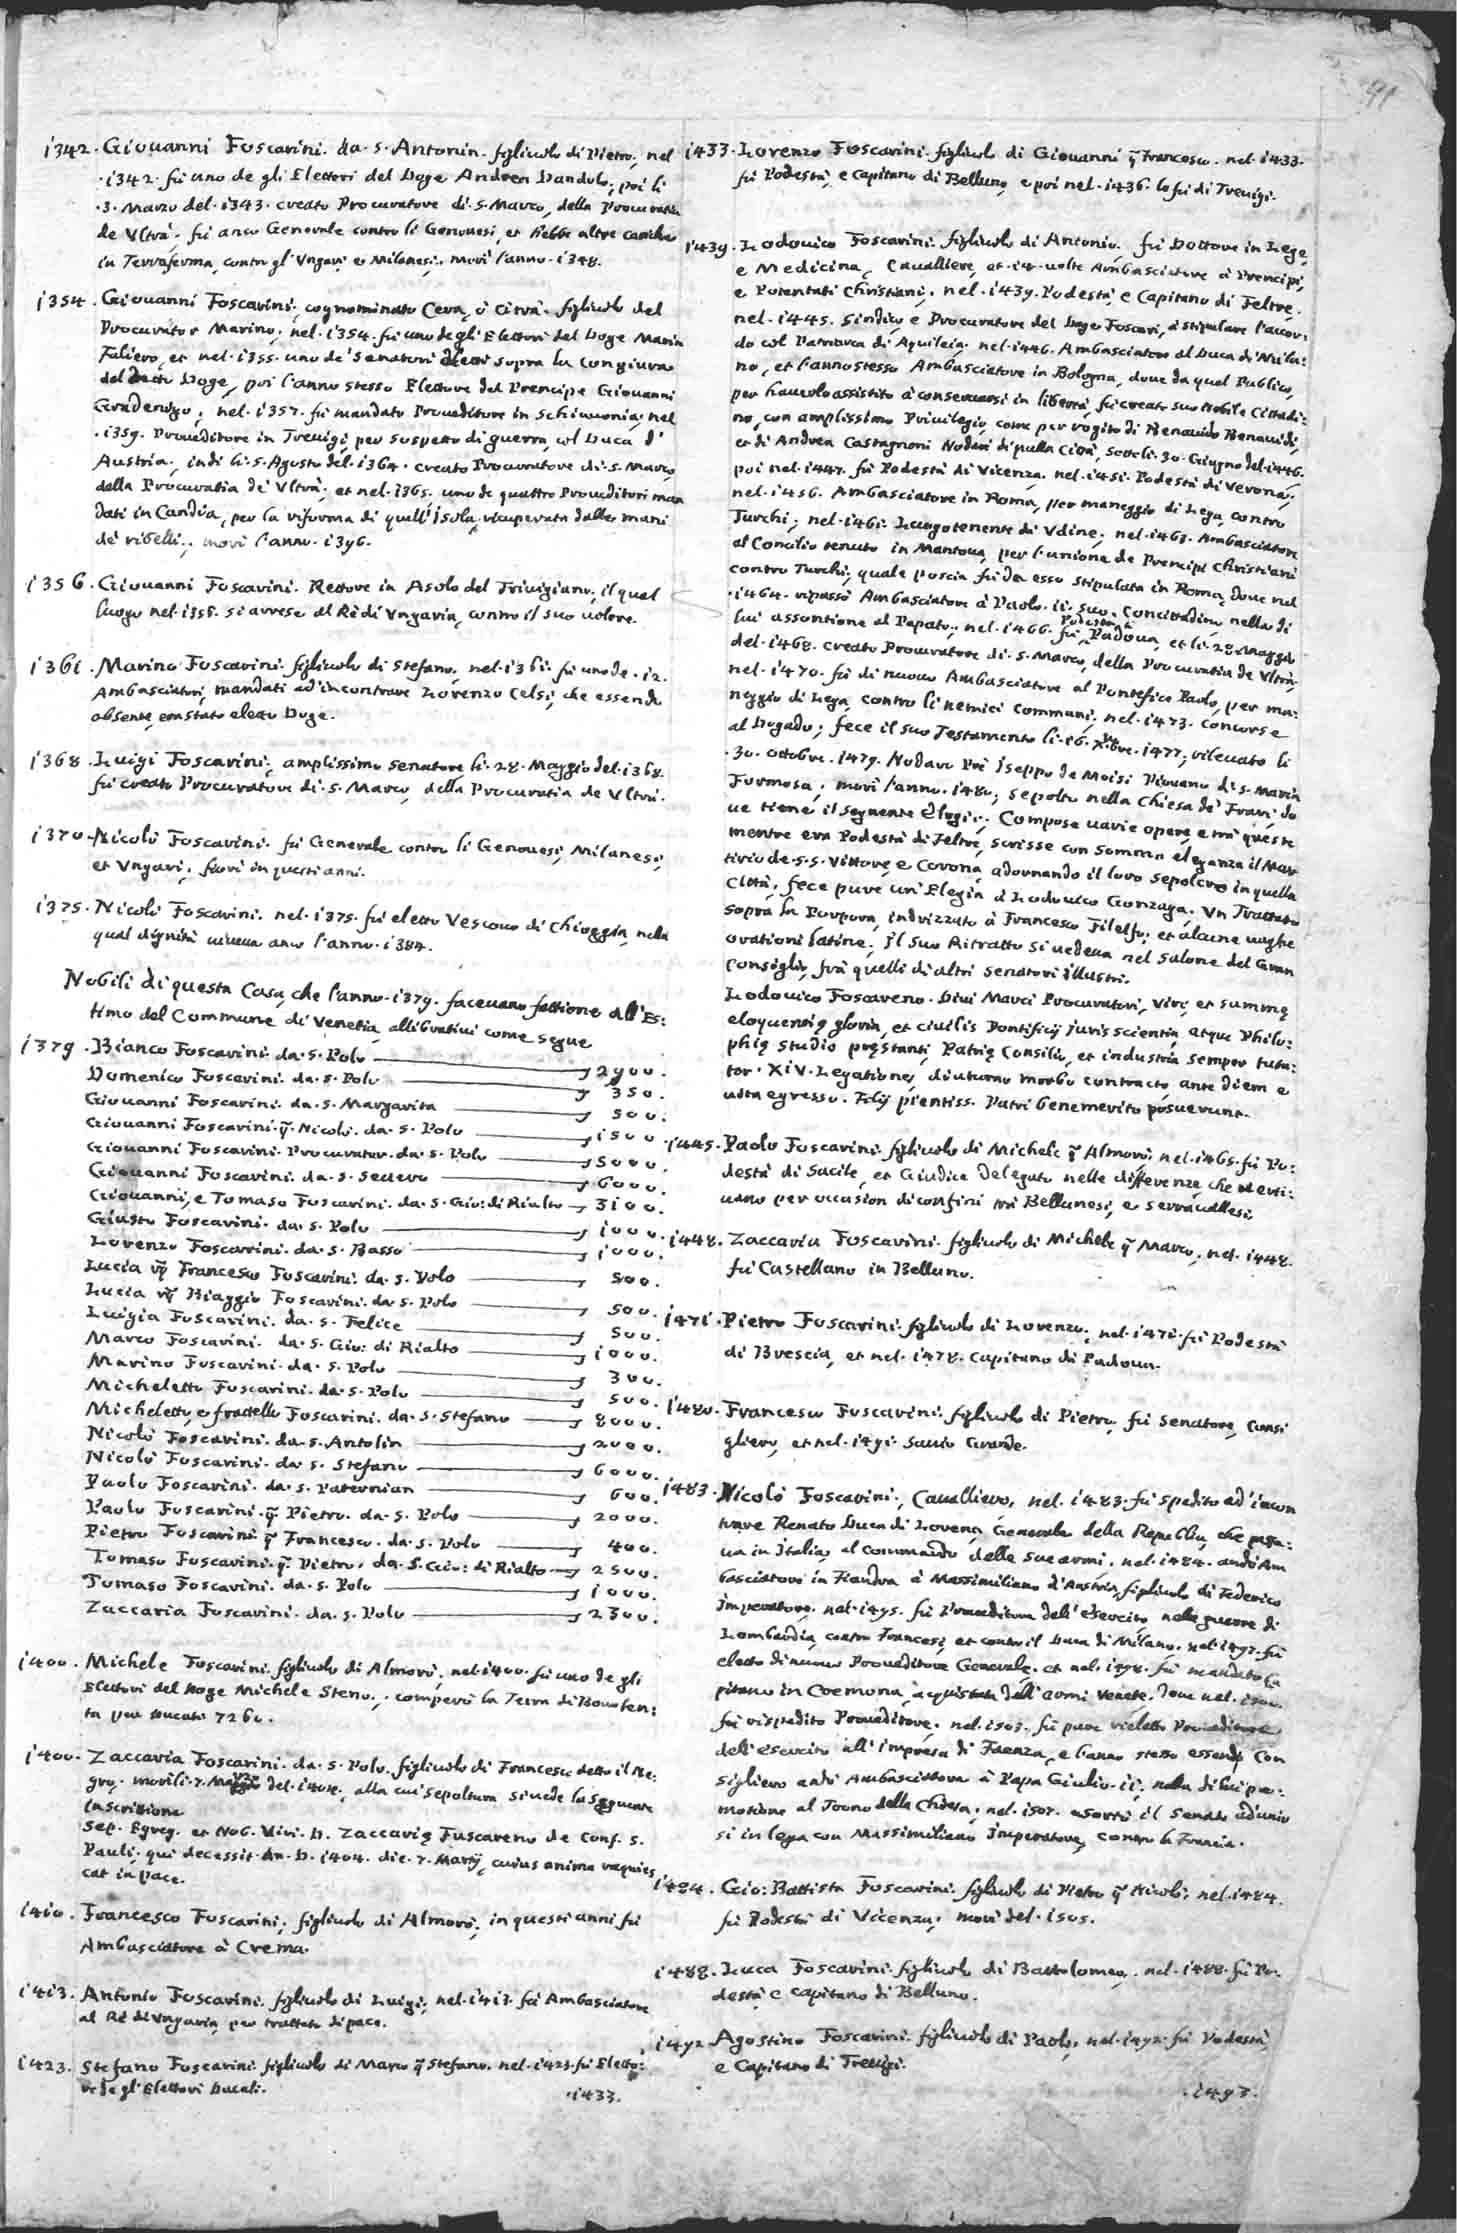 91
1342. Giouanni Foscarini. da. S. Antonin. figliuolo di Pietro, nel
.1342. fù uno de gli Elettori del Doge Andrea Dandolo; poi li
.3. Marzo del. 1343. creato Procuratore di. S. Marco, della Procuratia
de Vltrà. fù anco Generale contro li Genouesi, et hebbe altre cariche
in Terraferma, contro gl'Vngari e Milanesi; morì l'anno. 1348.
1354. Giouanni Foscarini, cognominato Ceva, ò Citrà. figliuolo del
Procurator Marino, nel. 1354. fù uno de gli Elettori del Doge Marin
Faliero, et nel. 1355. uno de' Senatori eletti sopra la congiura
del detto Doge, poi l'anno stesso Elettore del Prencipe Giouanni
Gradenigo; nel. 1357. fù mandato Proueditore in Schiauonia; nel
.1359. Proueditore in Treuigi, per suspetto di guerra, col Duca d'
Austria, indi li. 5. Agosto del. 1364. creato Procuratore di. S. Marco,
della Procuratia de Vltrà. et nel. 1365. uno de quattro Proueditori man
dati in Candia, per la riforma di quell'Isola, ricuperata dalle mani
de ribelli; morì l'anno. 1396.
1356. Giouanni Foscarini. Rettore in Asolo del Triuigiano, il qual
luogo nel. 1356. si arrese al Rè di Vngaria, contro il suo uolere.
1361. Marino Foscarini. figliuolo di Stefano, nel. 1361. fù uno de. 12.
Ambasciatori, mandati ad'incontrare Lorenzo Celsi, che essendo
absente, era stato eletto Doge.
1368. Luigi Foscarini, amplissimo senatore li. 28. Maggio del. 1368.
fù creato Procuratore di. S. Marco, della Procuratia de Vltrà.
1370. Nicolò Foscarini. fù Generale contro li Genouesi, Milanesi,
et Vngari, fiorì in questi anni.
1375. Nicolò Foscarini. nel. 1375. fù eletto Vescouo di Chioggia, nella
qual dignità uiueua anco l'anno. 1384.
Nobili di questa Casa, che l'anno. 1379. faceuano fattione all'Es:
timo del Commune di Venetia, allibrati come segue
1379. Bianco Foscarini. da. S. Polo 2900.
Domenico Foscarini. da. S. Polo 350.
Giouanni Foscarini. da. S. Margarita 500.
Giouanni Foscarini. q̃. Nicolò. da. S. Polo 1500.
Giouanni Foscarini. Procurator. da. S. Polo 5000.
Giouanni Foscarini. da. S. Seuero 6000.
Giouanni, e Tomaso Foscarini. da. S. Gio: di Rialto 3100.
Giusto Foscarini. da. S. Polo 1000.
Lorenzo Foscarini. da. S. Basso 1000.
Lucia ux̃ Francesco Foscarini. da. S. Polo 500.
Lucia ux̃ Biaggio Foscarini. da. S. Polo 500.
Luigia Foscarini. da. S. Felice 500.
Marco Foscarini. da. S. Gio: di Rialto 1000.
Marino Foscarini. da. S. Polo 300.
Micheletto Foscarini. da. S. Polo 500.
Micheletto, e fratello Foscarini. da. S. Stefano 8000.
Nicolò Foscarini. da. S. Antolin 2000.
Nicolò Foscarini. da. S. Stefano 6000.
Paolo Foscarini. da. S. Paternian 600.
Paolo Foscarini. q̃. Pietro. da. S. Polo 2000.
Pietro Foscarini q̃ Francesco. da. S. Polo 400.
Tomaso Foscarini. q̃. Pietro. da. S. Gio: di Rialto 2500.
Tomaso Foscarini. da. S. Polo 1000.
Zaccaria Foscarini. da. S. Polo 2300.
1400. Michele Foscarini. figliuolo di Almorò, nel. 1400. fù uno de gli
Elettori del Doge Michele Steno; comperò la Terra di Bouolen:
ta per Ducati 7260.
1400. Zaccaria Foscarini. da. S. Polo. figliuolo di Francesco detto il Ne:
gro, morì li. 7. Marzo del. 1404, alla cui sepoltura si uede la seguente
Inscrittione
Sep. Egreg. et Nob. Viri. D. Zaccarię Fuscareno de Conf. S.
Pauli. qui decessit. An. D. 1404. die. 7. Martij, cuius anima requies
cat in pace.
1410. Francesco Foscarini, figliuolo di Almorò, in questi anni fù
Ambasciatore à Crema.
1413. Antonio Foscarini. figliuolo di Luigi, nel. 1413. fù Ambasciatore
al Rè di Vngaria, per trattato di pace.
1423. Stefano Foscarini. figliuolo di Marco q̃ Stefano. nel. 1423. fù Eletto:
re de gl'Elettori Ducali.
.1433.
1433. Lorenzo Foscarini. figliuolo di Giouanni q̃ Francesco. nel. 1433.
fù Podestà, e Capitano di Belluno, e poi nel. 1436. lo fù di Treuigi.
1439. Lodouico Foscarini. figliuolo di Antonio, fù Dottore in Lege,
e Medicina, Caualliere, et. 14. uolte Ambasciatore à Prencipi,
e Potentati Christiani. nel. 1439. Podestà, e Capitano di Feltre.
nel. 1445. Sindico e Procuratore del Doge Foscari, à stipulare l'accor:
do col Patriarca di Aquileia. nel. 1446. Ambasciatore al Duca di Mila:
no, et l'anno stesso Ambasciatore in Bologna, doue da quel Publico,
per hauerlo assistito à conseruarsi in libertà, fù creato suo Nobile Cittadi:
no, con amplissimo Priuilegio, come per rogito di Benauido Benauidi,
et di Andrea Castagnoni Nodari di quella Città, sotto li. 30. Giugno del. 1446.
poi nel. 1447. fù Podestà di Vicenza. nel. 1451. Podestà di Verona;
nel. 1456. Ambasciatore in Roma, per maneggio di Lega, contro
Turchi; nel. 1461. Luogotenente di Vdine; nel. 1463. Ambasciatore
al Concilio tenuto in Mantoua, per l'unione de Prencipi Christiani
contro Turchi; quale poscia fù da esso stipulata in Roma, doue nel
.1464. ripassò Ambasciatore à Paolo. II. suo Concittadino, nella di
lui assontione al Papato; nel. 1466. fù Podestà à Padoua, et li. 28. Maggio
del. 1468. creato Procuratore di. S. Marco, della Procuratia de Vltrà;
nel. 1470. fù di nuouo Ambasciatore al Pontefice Paolo, per ma:
neggio di Lega, contro li nemici communi, nel. 1473. concorse
al Dogado; fece il suo Testamento li. 16. Xmbre. 1477, rileuato li
.30. ottobre. 1479. Nodaro Prè Iseppo de Moisi Piouano di. S. Maria
Formosa; morì l'anno. 1480; sepolto nella Chiesa de' Frari do
ue tiene il seguente Elogio; Compose uarie opere, e trà queste
mentre era Podestà di Feltre, scrisse con somma eleganza il Mar
tirio de. S. S. Vittore, e Corona, adornando il loro sepolcro in quella
Città; fece pure un'Elegia à Lodouico Gonzaga; Vn Trattato
sopra la Porpora, indrizzato à Francesco Filelfo; et alcune uaghe
orationi latine; Il suo Ritratto si uedeua nel salone del Gran
Consiglio, frà quelli di altri senatori illustri.
Lodouico Foscareno. Diui Marci Procuratori, Viri, et summę
eloquentię gloria, et ciuilis Pontificij juris scientia, atque Philo:
phię studio pręstanti, Patrię Consilio, et industria semper tuta:
tor. XIV. Legationes, diuturno morbo contracto, ante diem e
uita egresso. Filij pientiss. Patri benemerito posuerunt.
1445. Paolo Foscarini. figliuolo di Michele q̃ Almorò, nel. 1465. fù Po:
destà di Sacile, et Giudice delegato nelle differenze, che uerti:
uano per occasion di confini trà Bellunesi, e Serraualesi.
1448. Zaccaria Foscarini. figliuolo di Michele q̃ Marco, nel. 1448.
fù Castellano in Belluno.
1471. Pietro Foscarini. figliuolo di Lorenzo, nel. 1471. fù Podestà
di Brescia, et nel. 1478. Capitano di Padoua.
1480. Francesco Foscarini. figliuolo di Pietro, fù Senatore, Consi
gliero, et nel. 1491. Sauio Grande.
1483. Nicolò Foscarini, Cavalliero, nel. 1483. fù spedito ad'incon
trare Renato Duca di Lorena, Generale della Republica, che passa:
ua in Italia, al commando delle sue armi. nel. 1484. andò Am
basciatore in Fiandra à Massimiliano d'Austria, figliuolo di Federico
Imperatore. nel. 1495. fù Proueditore dell'esercito nelle guerre di
Lombardia, contro Francesi, et contro il Duca di Milano. nel. 1497. fù
eletto di nuouo Proueditore Generale. et nel. 1498. fù mandato Ca
pitano in Cremona, acquistata dall'armi Venete, doue nel. 1500.
fù rispedito Proueditore. nel. 1503. fù pure rieletto Proueditore
dell'esercito all'impresa di Faenza, e l'anno stesso essendo Con
sigliero andò Ambasciatore à Papa Giulio. II; nella di lui pro:
motione al Trono della Chiesa; nel. 1507. esortò il Senato ad'unir
si in lega con Massimiliano Imperatore, contro la Francia.
1484. Gio: Battista Foscarini. figliuolo di Pietro q̃ Nicolò; nel. 1484.
fù Podestà di Vicenza; morì del. 1505.
1488. Luca Foscarini. figliuolo di Bartolomeo, nel. 1488. fù Po:
destà e Capitano di Belluno.
1492. Agostino Foscarini. figliuolo di Paolo, nel. 1492. fù Podestà,
e Capitano di Treuigi.
.1493.